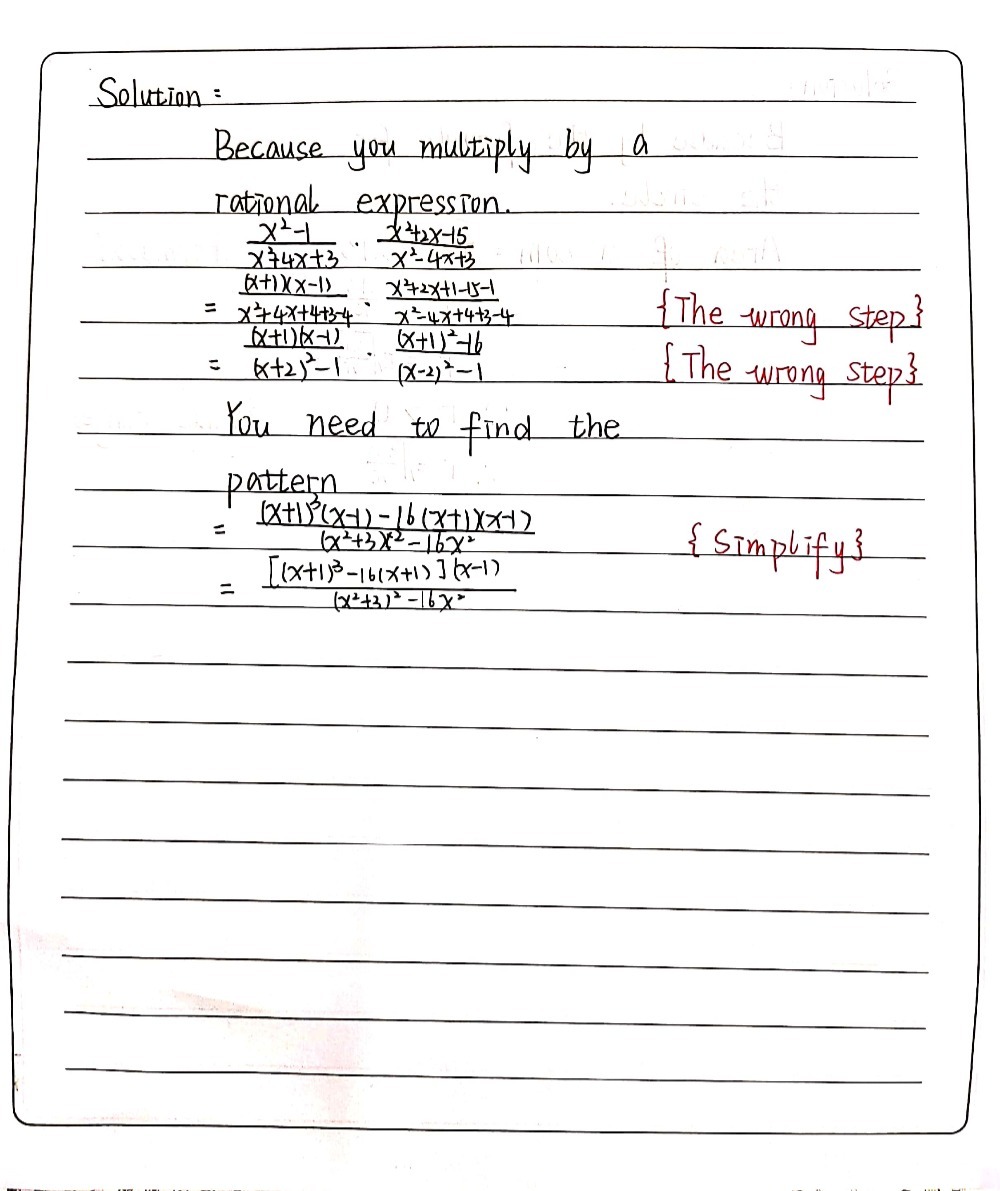 Solution :
Because you multiply by a
rational expression.
(x²-1)/(x²+4x+3) · (x²+2x-15)/(x²-4x+3)
= ((x+1)(x-1))/(x²+4x+4+3-4) · (x²+2x+1-15-1)/(x²-4x+4+3-4) {The wrong step}
= ((x+1)(x-1))/((x+2)²-1) · ((x+1)²-16)/((x-2)²-1) {The wrong step}
You need to find the
pattern
= ((x+1)³(x-1)-16(x+1)(x-1))/((x²+3)²-16x²) {Simplify}
= ([(x+1)³-16(x+1)](x-1))/((x²+3)²-16x²)